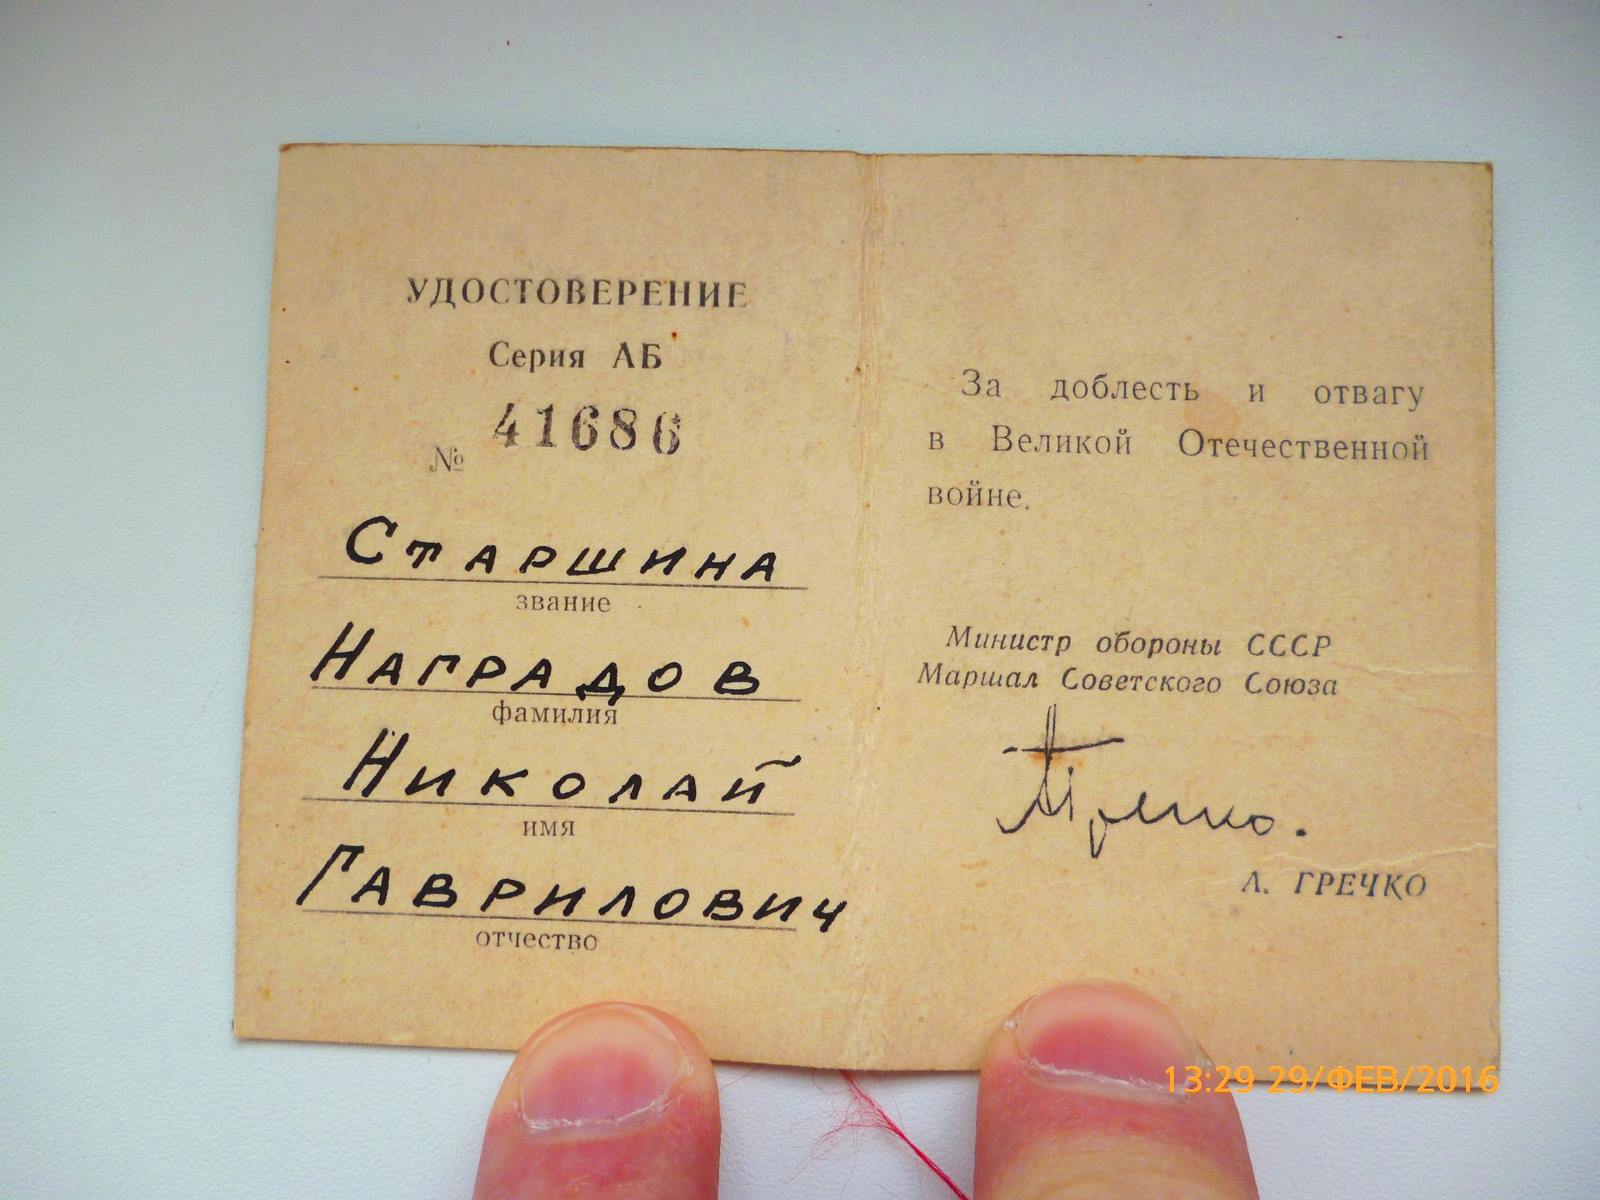 УДОСТОВЕРЕНИЕ
Серия АБ
№ 41686
Старшина
звание
Наградов
фамилия
Николай
имя
Гаврилович
отчество
За доблесть и отвагу
в Великой Отечественной
войне.
Министр обороны СССР
Маршал Советского Союза
Гречко.
А. ГРЕЧКО
13:29 29/ФЕВ/2016